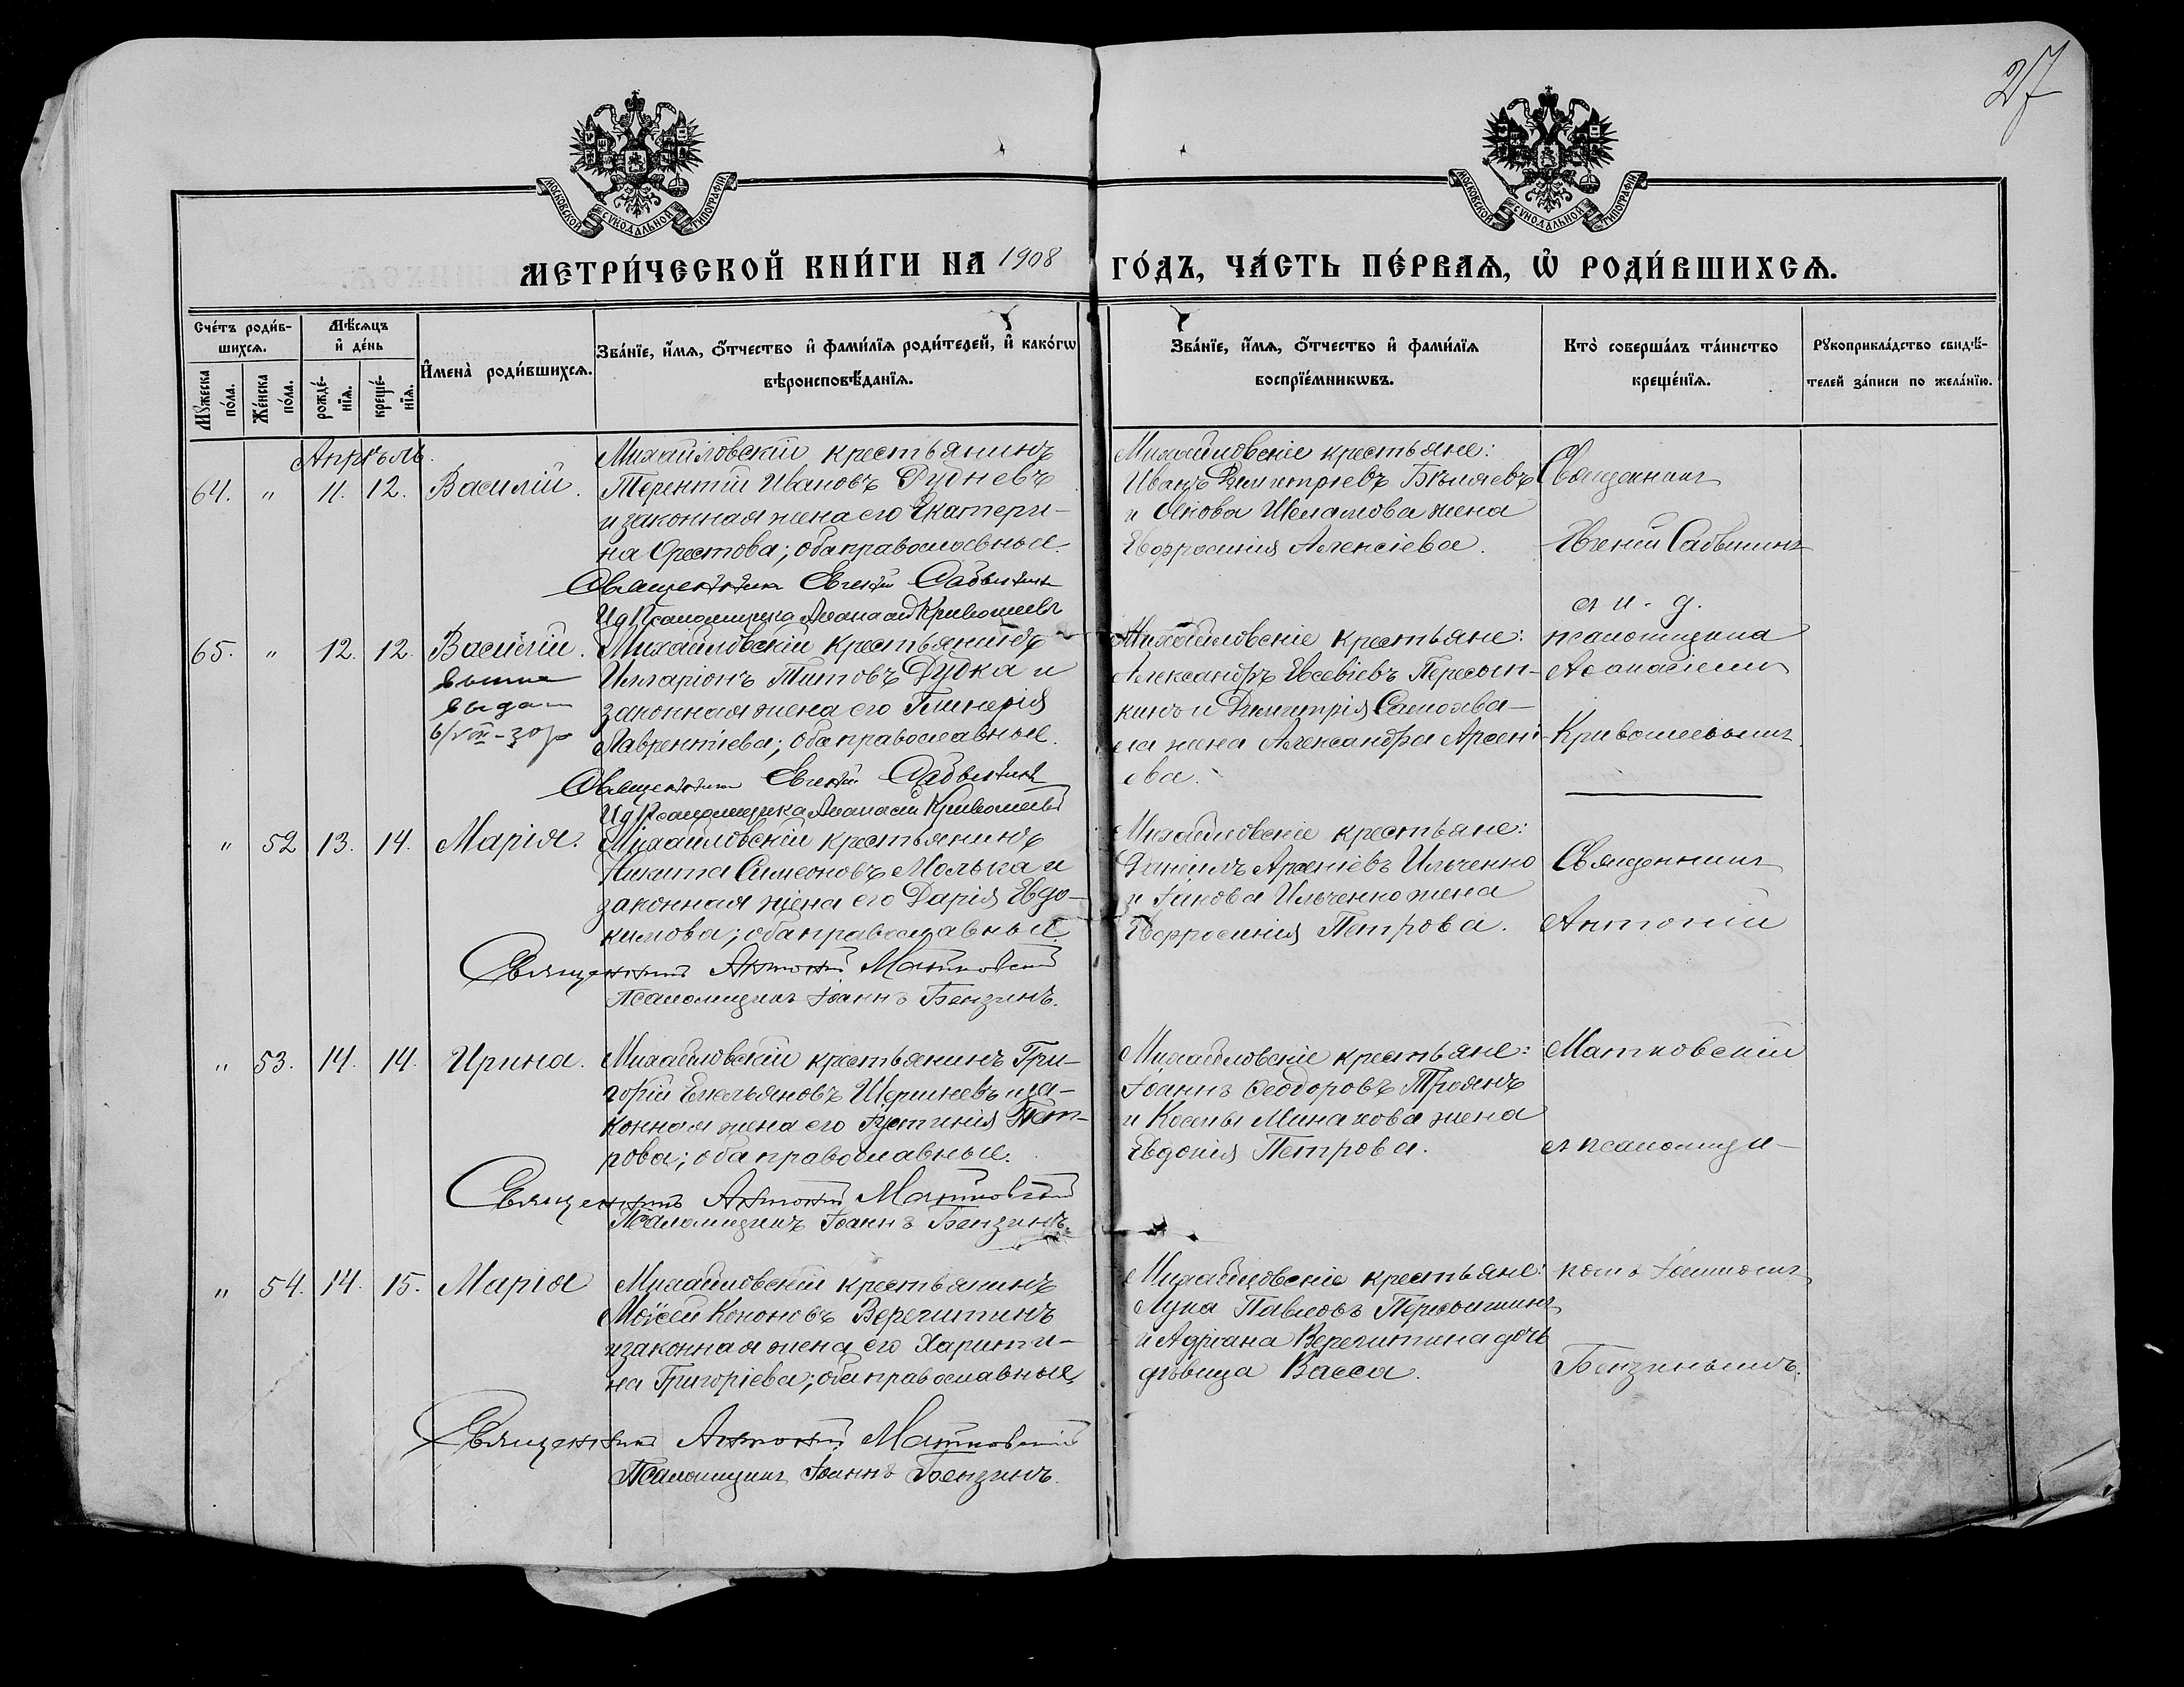 27
МОСКОВСКОЙ СУНОДАЛЬНОЙ ТИПОГРАФІИ
МОСКОВСКОЙ СУНОДАЛЬНОЙ ТИПОГРАФІИ
МЕТРИ́ЧЕСКОЙ КНИ́ГИ НА 1908 ГО́ДЪ, ЧА́СТЬ ПЕ́РВАѦ, Ѽ РОДИ́ВШИХСѦ.
Сче́тъ роди́в-
шихсѧ.
Мꙋжеска по́ла.
Же́нска по́ла.
Мѣ́сѧцъ
и҆ де́нь
рожде́-
нїѧ.
креще́-
нїѧ.
И҆мена̀ роди́вшихсѧ.
Зва́нїе, и҆́мѧ, ѻ҆́тчество и҆ фами́лїѧ роди́телей, и҆ како́гѡ
вѣроисповѣ́данїѧ.
Зва́нїе, и҆́мѧ, ѻ҆́тчество и҆ фами́лїѧ
воспрїе́мникѡвъ.
Кто̀ соверша́лъ та́инство
креще́нїѧ.
Рꙋкоприкла́дство свидѣ́-
телей за́писи по жела́нїю.
Апрѣль.
64. " 11. 12. Василій.
Михайловскій крестьянинъ
Терентій Ивановъ Рудневъ
и законная жена его Екатери-
на Орестова; оба православные.
Священникъ Евгеній Савьинъ
И д Псаломщика Аѳанасій Кривошеевъ
Михайловскіе крестьяне:
Иванъ Димитріевъ Бѣляевъ
и Іакова Шеламова жена
Евфросинія Алексіева.
Священникъ
Евгеній Савьинъ
65. " 12. 12. Василій.
выпис
выдан
6/VIII-30 г
Михайловскій крестьянинъ
Илларіонъ Титовъ Дудка и
законная жена его Гликерія
Лаврентіева; оба православные.
Священникъ Евгеній Савьинъ
И д Псаломщика Аѳанасій Кривошеевъ
Михайловскіе крестьяне:
Александръ Евсевіевъ Пересып-
кинъ и Димитрія Самохва-
ла жена Александра Арсені-
ева.
съ и. д.
псаломщика
Аѳанасіемъ
Кривошеевымъ
" 52 13. 14. Марія.
Михайловскій крестьянинъ
Никита Симеоновъ Молька и
законная жена его Дарія Евдо-
кимова; оба православные.
Священникъ Антоній Матковскій
Псаломщикъ Іоаннъ Бензинъ.
Михайловскіе крестьяне:
Даніилъ Арсеніевъ Ильченко
и Іакова Ильченко жена
Евфросинія Петрова.
Священникъ
Антоній
" 53. 14. 14. Ирина.
Михайловскій крестьянинъ Гри-
горій Емельяновъ Шершневъ и за-
конная жена его Іустинія Пет-
рова; оба православные.
Священникъ Антоній Матковскій
Псаломщикъ Іоаннъ Бензинъ.
Михайловскіе крестьяне:
Іоаннъ Ѳеодоровъ Троянъ
и Косьмы Минакова жена
Евдокія Петрова.
Матковскій
съ псаломщи-
" 54. 14. 15. Марія
Михайловскій крестьянинъ
Моѵсей Кононовъ Веретитинъ
и законная жена его Харити-
на Григоріева; оба православные.
Священникъ Антоній Матковскій
Псаломщикъ Іоаннъ Бензинъ.
Михайловскіе крестьяне:
Лука Павловъ Пересыпкинъ
и Адріана Веретитина дочь
дѣвица Васса.
комъ Іоанномъ
Бензинымъ.